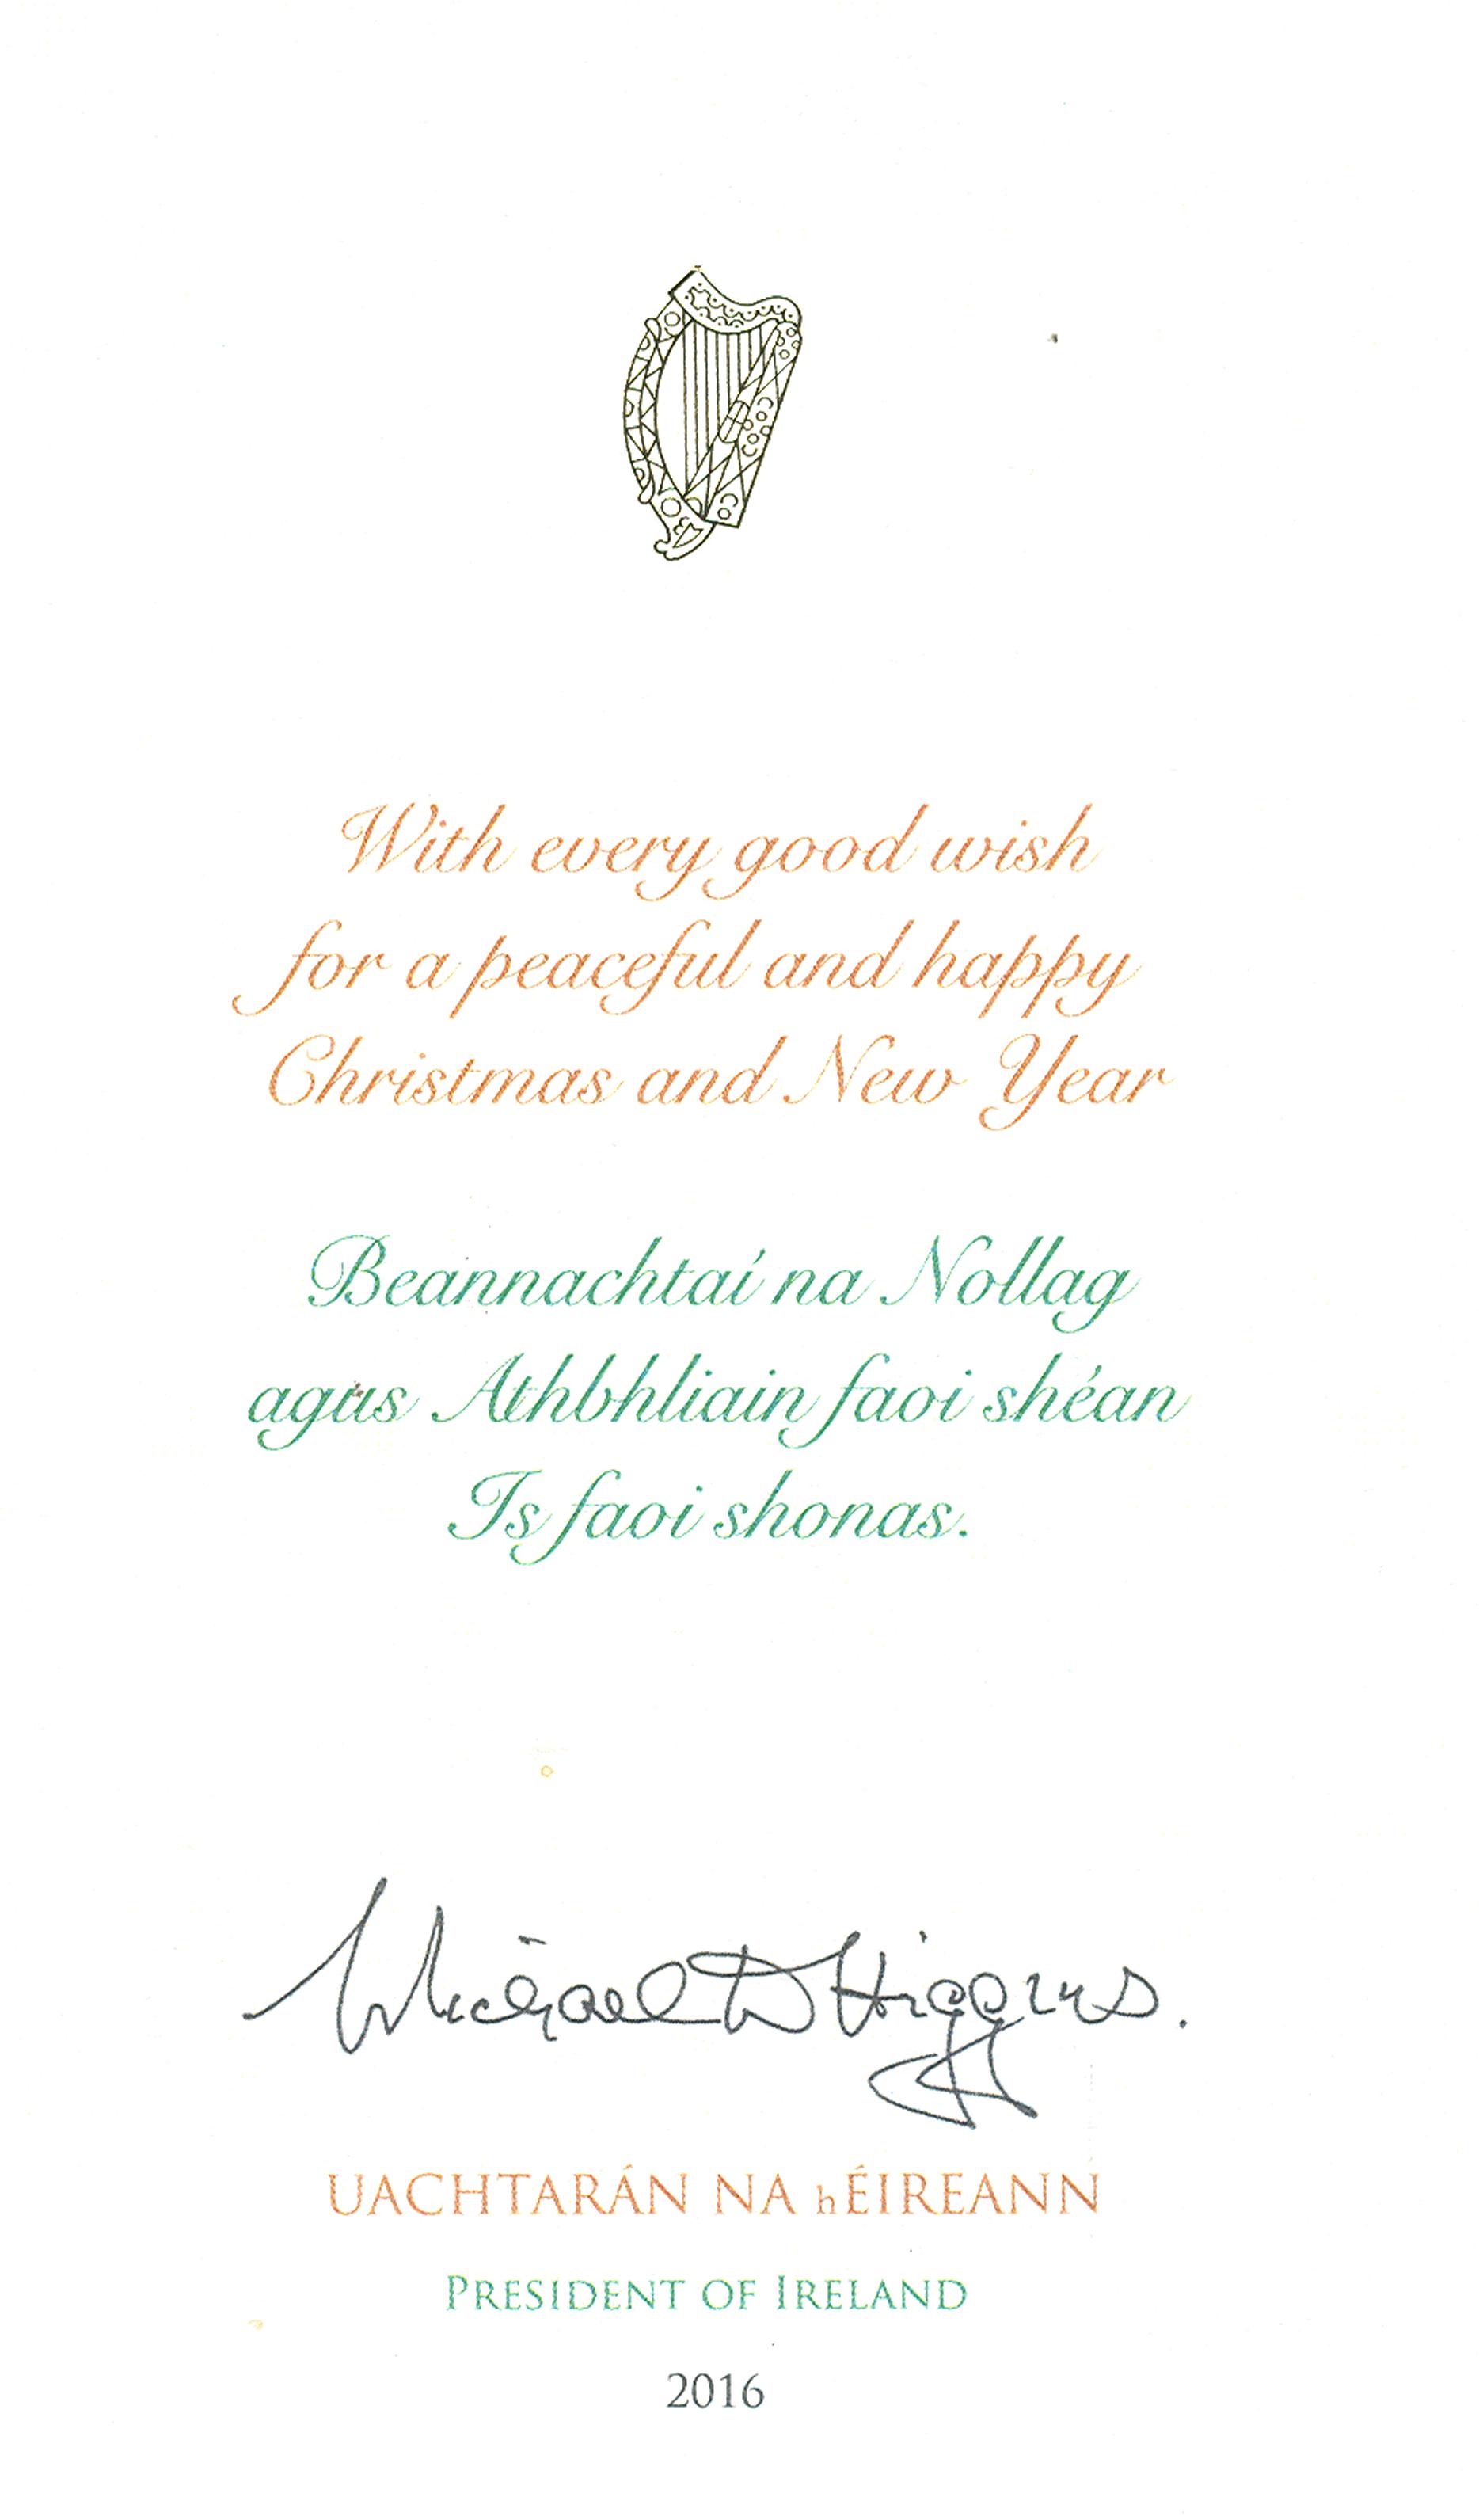 With every good wish
for a peaceful and happy
Christmas and New Year
Beannachtaí na Nollag
agus Athbhliain faoi shéan
Is faoi shonas.
Micheal D Higgins.
UACHTARÁN NA hÉIREANN
PRESIDENT OF IRELAND
2016